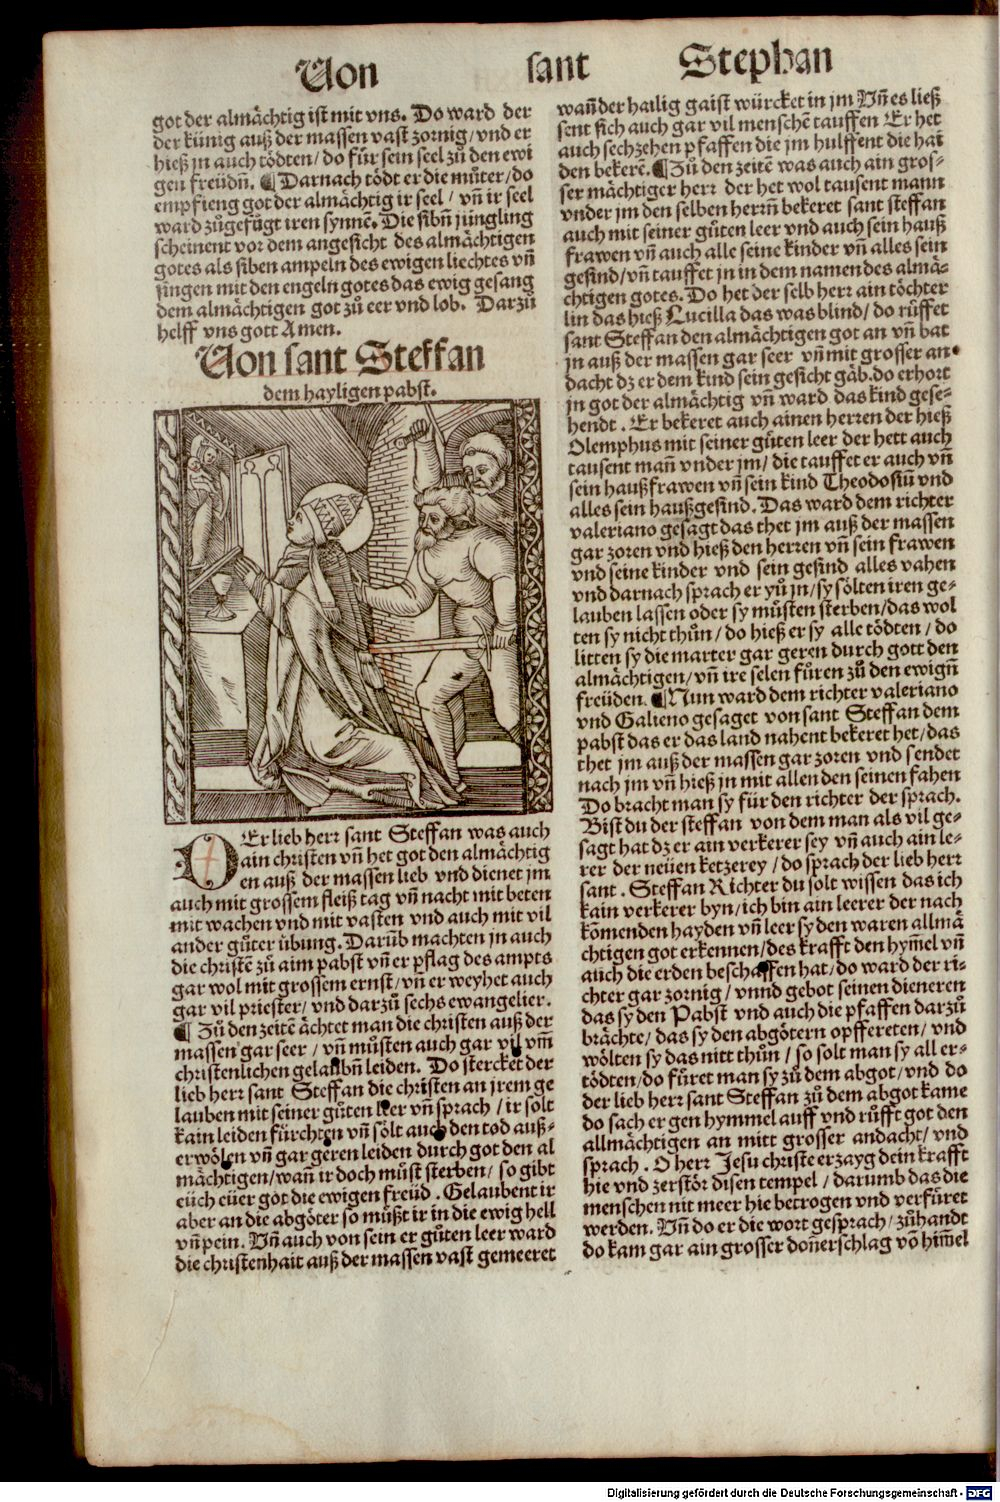 Von sant Stephan
got der almächtig ist mit vns. Do ward der
der künig auß der massen vast zornig/vnd er
hieß jn auch tödten/do für sein seel zů den ewi
gen freüdn̄. ¶ Darnach tödt er die můter/do
empfieng got der almächtig ir seel/ vn̄ ir seel
ward zůgefügt iren synnē. Die sibn̄ jüngling
scheinent vor dem angesicht des almächtigen
gotes als siben ampeln des ewigen liechtes vn̄
singen mit den engeln gotes das ewig gesang
dem almächtigen got zů eer vnd lob. Darzů
helff vns gott Amen.
Von sant Steffan
dem hayligen pabst.
DEr lieb herr sant Steffan was auch
ain christen vn̄ het got den almächtig
en auß der massen lieb vnd dienet jm
auch mit grossem fleiß tag vn̄ nacht mit beten
mit wachen vnd mit vasten vnd auch mit vil
ander gůter übung. Darūb machten jn auch
die christē zů aim pabst vn̄ er pflag des ampts
gar wol mit grossem ernst/vn̄ er weyhet auch
gar vil priester/vnd darzů sechs ewangelier.
¶ Zů den zeitē ächtet man die christen auß der
massen gar seer/vn̄ můsten auch gar vil vm̄
christenlichen gelaubn̄ leiden. Do stercket der
lieb herr sant Steffan die christen an jrem ge
lauben mit seiner gůten leer vn̄ sprach/ir solt
kain leiden fürchten vn̄ sölt auch den tod auß-
erwölen vn̄ gar geren leiden durch got den al
mächtigen/wan̄ ir doch můst sterben/ so gibt
eüch eüer got die ewigen freüd. Gelaubent ir
aber an die abgöter so müßt ir in die ewig hell
vn̄ pein. Vn̄ auch von sein er gůten leer ward
die christenhait auß der massen vast gemeeret
wan̄ der hailig gaist würcket in jm Vn̄ es ließ
sent sich auch gar vil menschē tauffen Er het
auch sechzehen pfaffen die jm hulffent die hai
den bekerē. ¶ Zů den zeitē was auch ain gros-
ser mächtiger herr der het wol tausent mann
vnder jm den selben herrn̄ bekeret sant steffan
auch mit seiner gůten leer vnd auch sein hauß
frawen vn̄ auch alle seine kinder vn̄ alles sein
gesind/vn̄ tauffet jn in dem namen des almä-
chtigen gotes. Do het der selb herr ain töchter
lin das hieß Lucilla das was blind/do růffet
sant Steffan den almächtigen got an vn̄ bat
jn auß der massen gar seer vn̄ mit grosser an
dacht dz er dem kind sein gesicht gäb.do erhort
jn got der almächtig vn̄ ward das kind gese-
hendt. Er bekeret auch ainen herren der hieß
Olemphus mit seiner gůten leer der hett auch
tausent man̄ vnder jm/die tauffet er auch vn̄
sein haußfrawen vn̄ sein kind Theodosiū vnd
alles sein haußgesind. Das ward dem richter
valeriano gesagt das thet jm auß der massen
gar zoren vnd hieß den herren vn̄ sein frawen
vnd seine kinder vnd sein gesind alles vahen
vnd darnach sprach er yů jn/sy sölten iren ge-
lauben lassen oder sy můsten sterben/das wol
ten sy nicht thůn/do hieß er sy alle tödten/do
litten sy die marter gar geren durch gott den
almächtigen/vn̄ ire selen fůren zů den ewign̄
freüden. ¶ Nun ward dem richter valeriano
vnd Galieno gesaget von sant Steffan dem
pabst das er das land nahent bekeret het/das
thet jm auß der massen gar zoren vnd sendet
nach jm vn̄ hieß jn mit allen den seinen fahen
Do bracht man sy für den richter der sprach.
Bist du der steffan von dem man als vil ge-
sagt hat dz er ain verkerer sey vn̄ auch ain le-
rer der neüen ketzerey/do sprach der lieb herr
sant. Steffan Richter du solt wissen das ich
kain verkerer byn/ich bin ain leerer der nach
kōmenden hayden vn̄ leer sy den waren allmä
chtigen got erkennen/des krafft den hym̄el vn̄
auch die erden beschaffen hat/do ward der ri-
chter gar zornig/vnnd gebot seinen dieneren
das sy den Pabst vnd auch die pfaffen darzů
brächte/das sy den abgötern opffereten/vnd
wölten sy das nitt thůn/so solt man sy all er-
tödten/do füret man sy zů dem abgot/vnd do
der lieb herr sant Steffan zů dem abgot kame
do sach er gen hymmel auff vnd růfft got den
allmächtigen an mitt grosser andacht/vnd
sprach. O herr Jesu christe erzayg dein krafft
hie vnd zerstör disen tempel/darumb das die
menschen nit meer hie betrogen vnd verfüret
werden. Vn̄ do er die wort gesprach/zůhandt
do kam gar ain grosser don̄erschlag vō him̄el
Digitalisierung gefördert durch die Deutsche Forschungsgemeinschaft - DFG